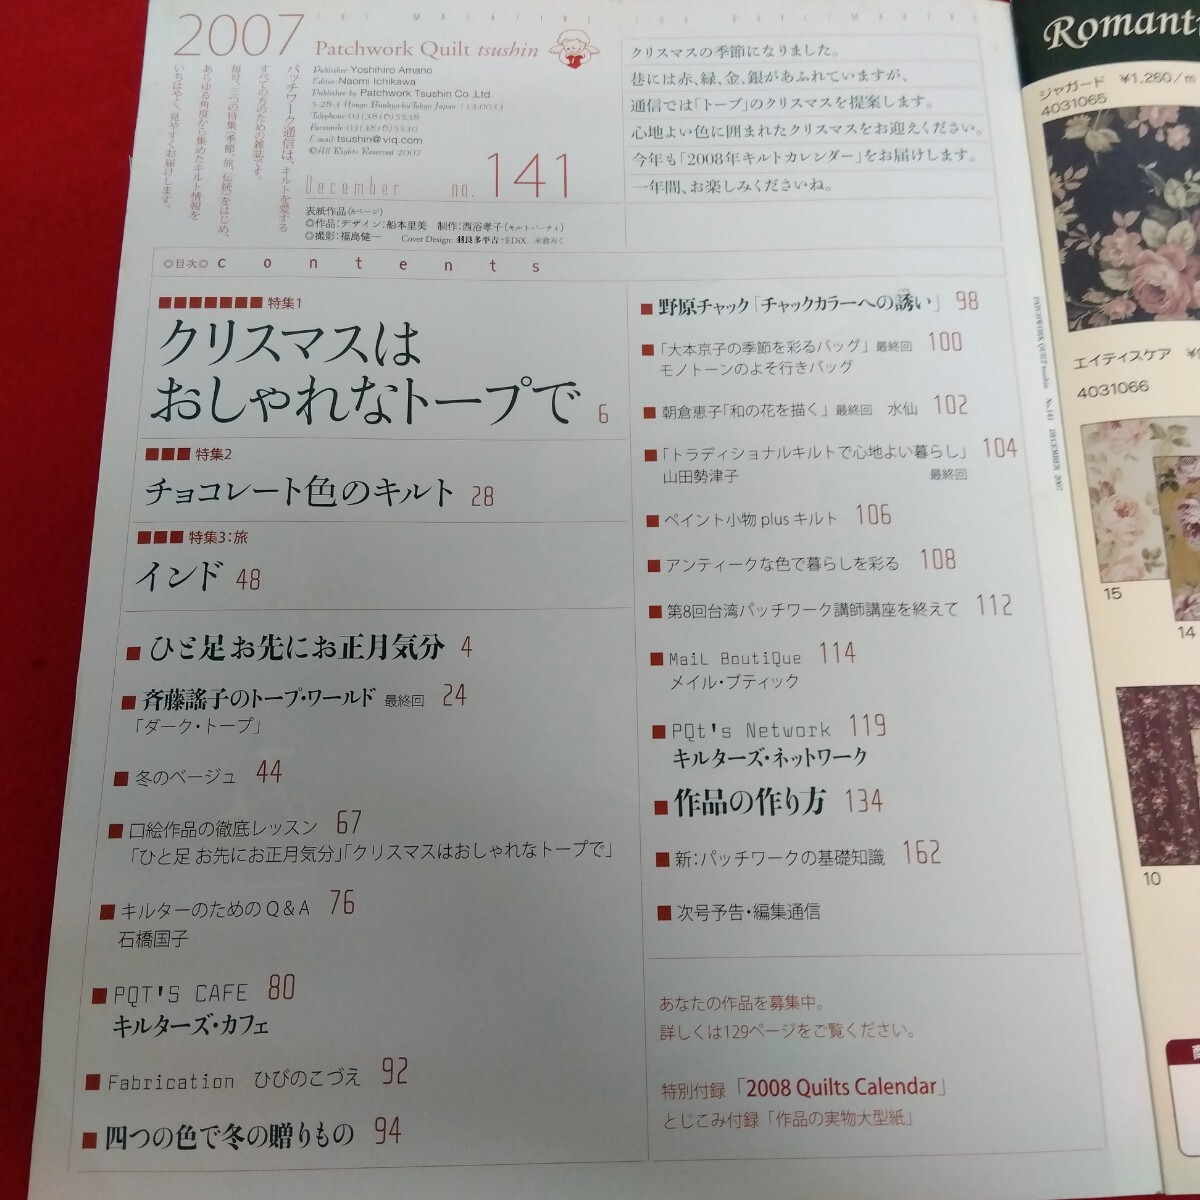 THE MAGAZINE FOR QUILTMAKING
2007
Patchwork Quilt tsushin
Publisher: Yoshihiro Amano
Editor: Naomi Ichikawa
Publisher by Patchwork Tsushin Co.,Ltd
5-28-3 Hongo Bunkyo-ku Tokyo Japan 113-0033
Telephone: 03(3816)5538
Facsimile: 03(3816)5530
E-mail: tsushin@viq.com
©All Rights Reserved 2007
パッチワーク通信は、キルトを愛する
すべての方のための雑誌です。
毎号、三つの特集(季節、旅、伝統)をはじめ、
あらゆる角度から集めたキルト情報を
いちはやく、見やすくお届けします。
December no. 141
表紙作品(8ページ)
◎作品:デザイン:船本里美 制作:西谷孝子(キルトパーティ)
◎撮影:福島健一 Cover Design: 羽良多平吉+EDiX. 米倉みく
クリスマスの季節になりました。
巷には赤、緑、金、銀があふれていますが、
通信では「トープ」のクリスマスを提案します。
心地よい色に囲まれたクリスマスをお迎えください。
今年も「2008年キルトカレンダー」をお届けします。
一年間、お楽しみくださいね。
◎目次◎ contents
特集1
クリスマスは
おしゃれなトープで 6
特集2
チョコレート色のキルト 28
特集3:旅
インド 48
ひと足お先にお正月気分 4
斉藤謠子のトープ・ワールド 最終回 24
「ダーク・トープ」
冬のベージュ 44
口絵作品の徹底レッスン 67
「ひと足 お先にお正月気分」「クリスマスはおしゃれなトープで」
キルターのためのQ&A 76
石橋国子
PQT'S CAFE 80
キルターズ・カフェ
Fabrication ひびのこづえ 92
四つの色で冬の贈りもの 94
野原チャック「チャックカラーへの誘い」 98
「大本京子の季節を彩るバッグ」最終回 100
モノトーンのよそ行きバッグ
朝倉恵子「和の花を描く」 最終回 水仙 102
「トラディショナルキルトで心地よい暮らし」 104
山田勢津子 最終回
ペイント小物 plus キルト 106
アンティークな色で暮らしを彩る 108
第8回台湾パッチワーク講師講座を終えて 112
MaiL BoutiQue 114
メイル・ブティック
PQt's Network 119
キルターズ・ネットワーク
作品の作り方 134
新:パッチワークの基礎知識 162
次号予告・編集通信
あなたの作品を募集中。
詳しくは129ページをご覧ください。
特別付録「2008 Quilts Calendar」
とじこみ付録「作品の実物大型紙」
PATCHWORK QUILT tsushin No.141 DECEMBER 2007
Romant
ジャガード ¥1,260/m
4031065
エイティスケア
4031066
15
14
10